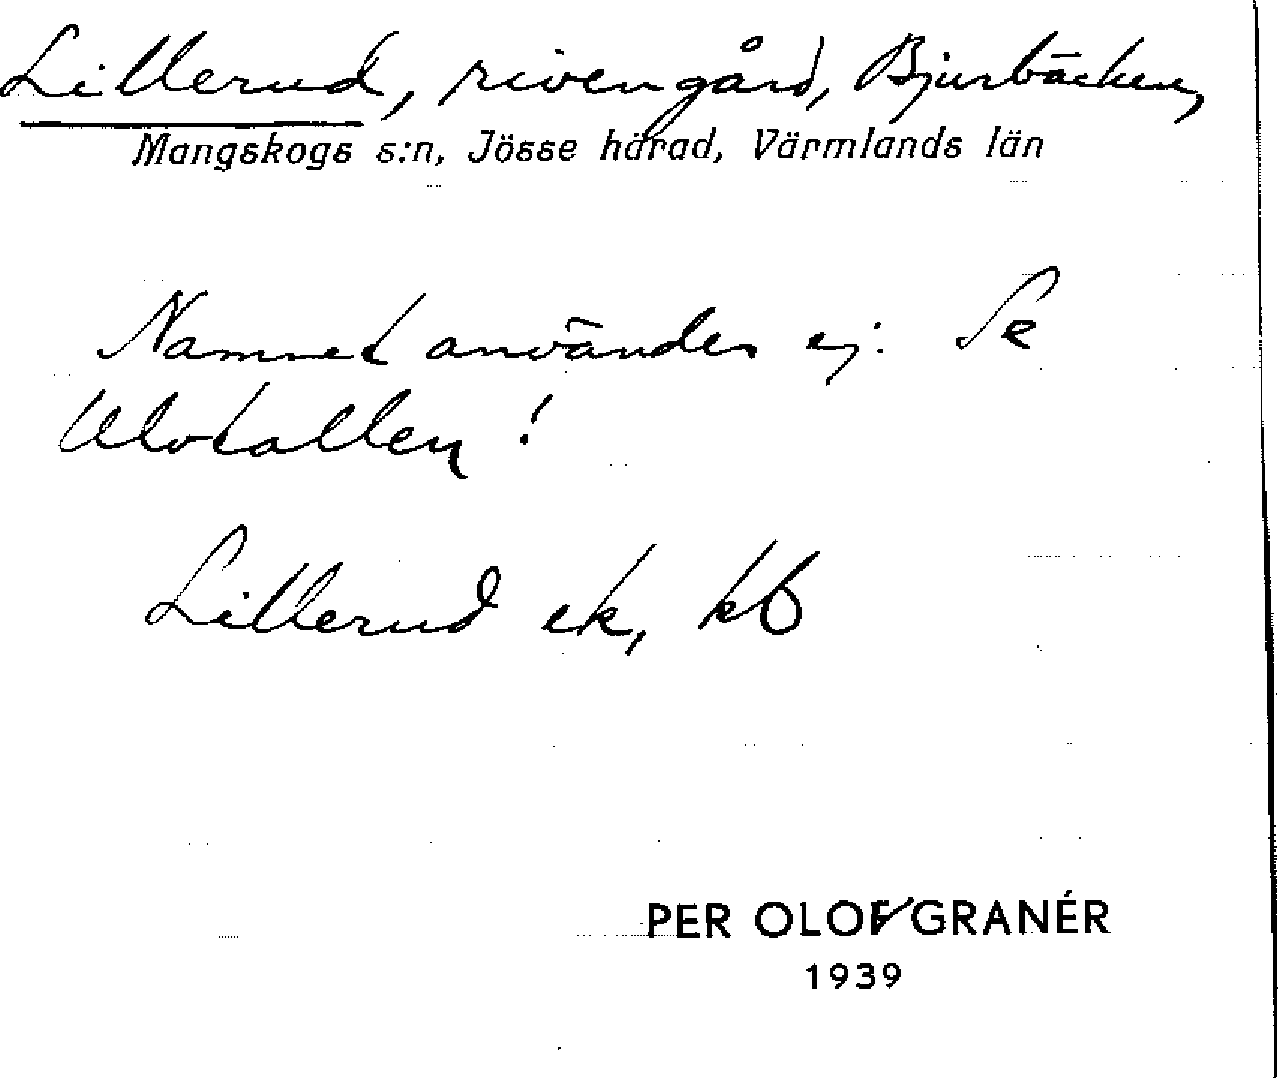 Lillerud, rivengård, Bjurbäcken,
Mangskogs s:n, Jösse härad, Värmlands län
Namnet användes ej. Se
Ulvtallen!
Lillerud ek, kb
PER OLOF GRANÉR
1939